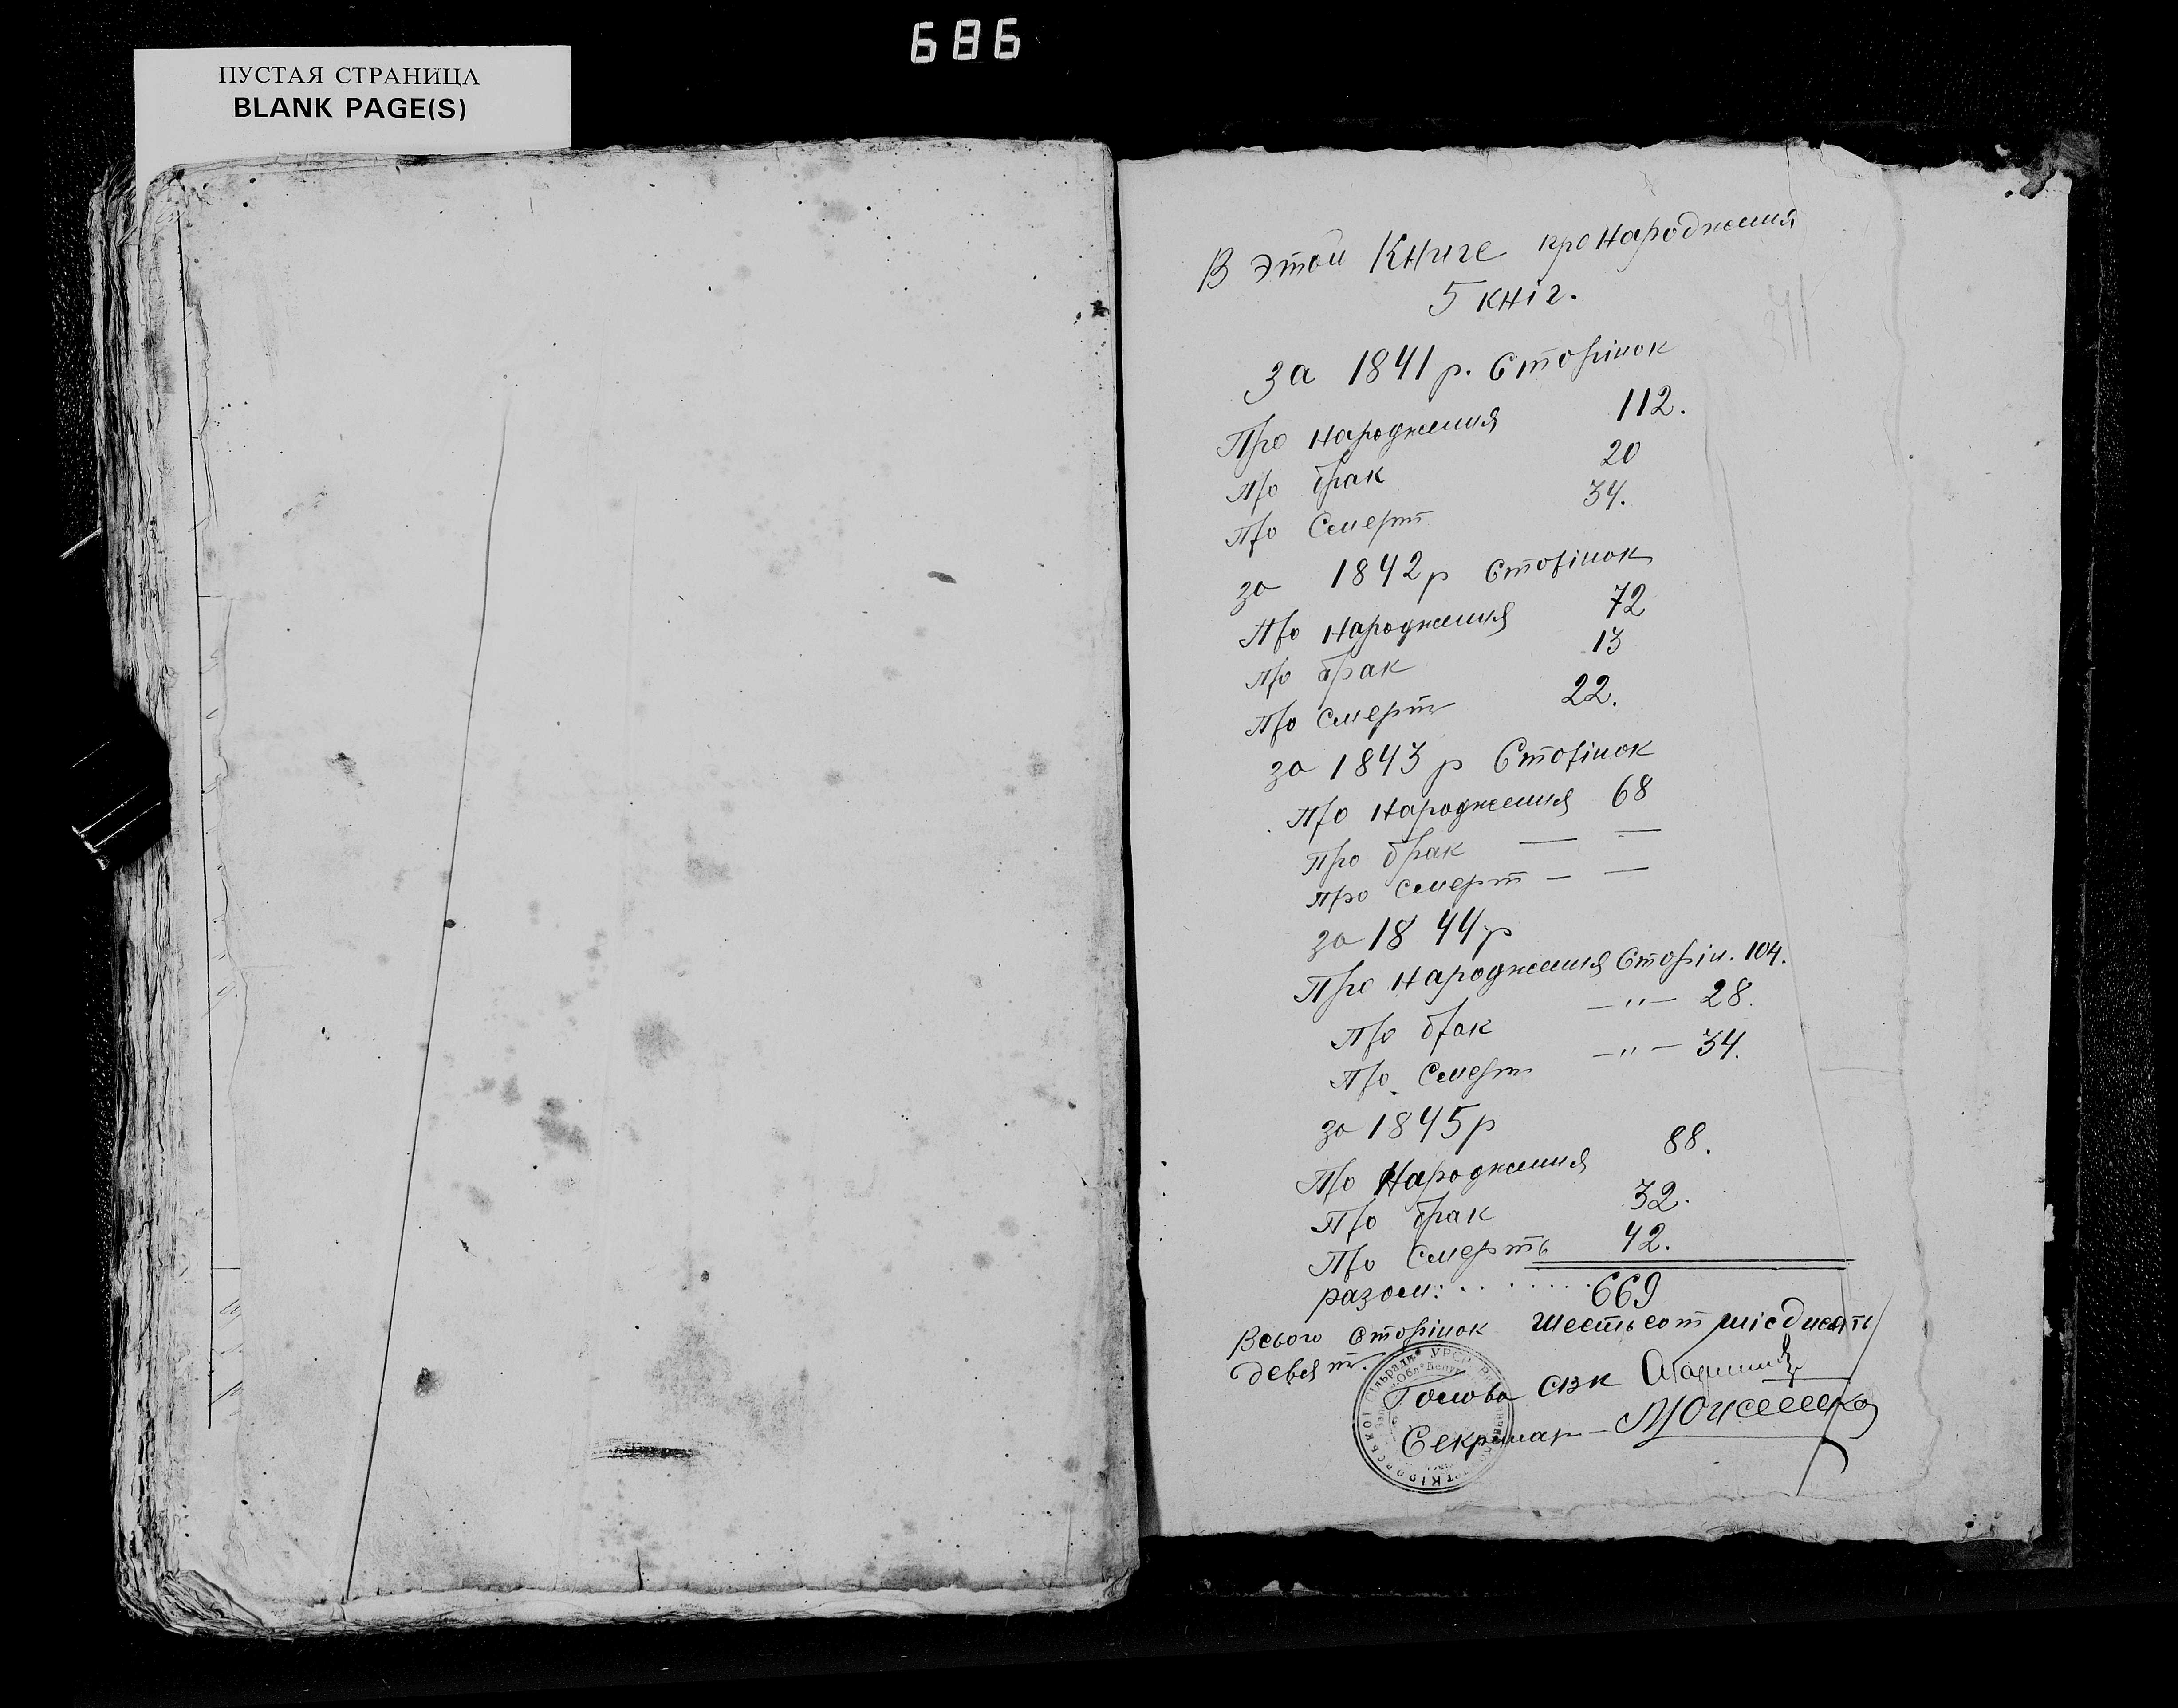 686
ПУСТАЯ СТРАНИЦА
BLANK PAGE(S)
В этой Книге про народження
5 кніг.
за 1841 р. Сторінок
Про народження 112.
Про брак 20
Про Смерт 34.
за 1842 р Сторінок
Про народження 72
Про брак 13
Про смерт 22.
за 1843 р Сторінок
Про народження 68
Про брак — —
Про смерт — —
за 1844 р
Про народження Сторін. 104.
Про брак —"— 28.
Про Смерт —"— 34.
за 1845 р
Про Народження 88.
Про брак 32.
Про Смерть 42.
разом: . . . . . . . 669
Всього сторінок Шестьсот шісдисять
девят.
Голова СВК
Секритар –